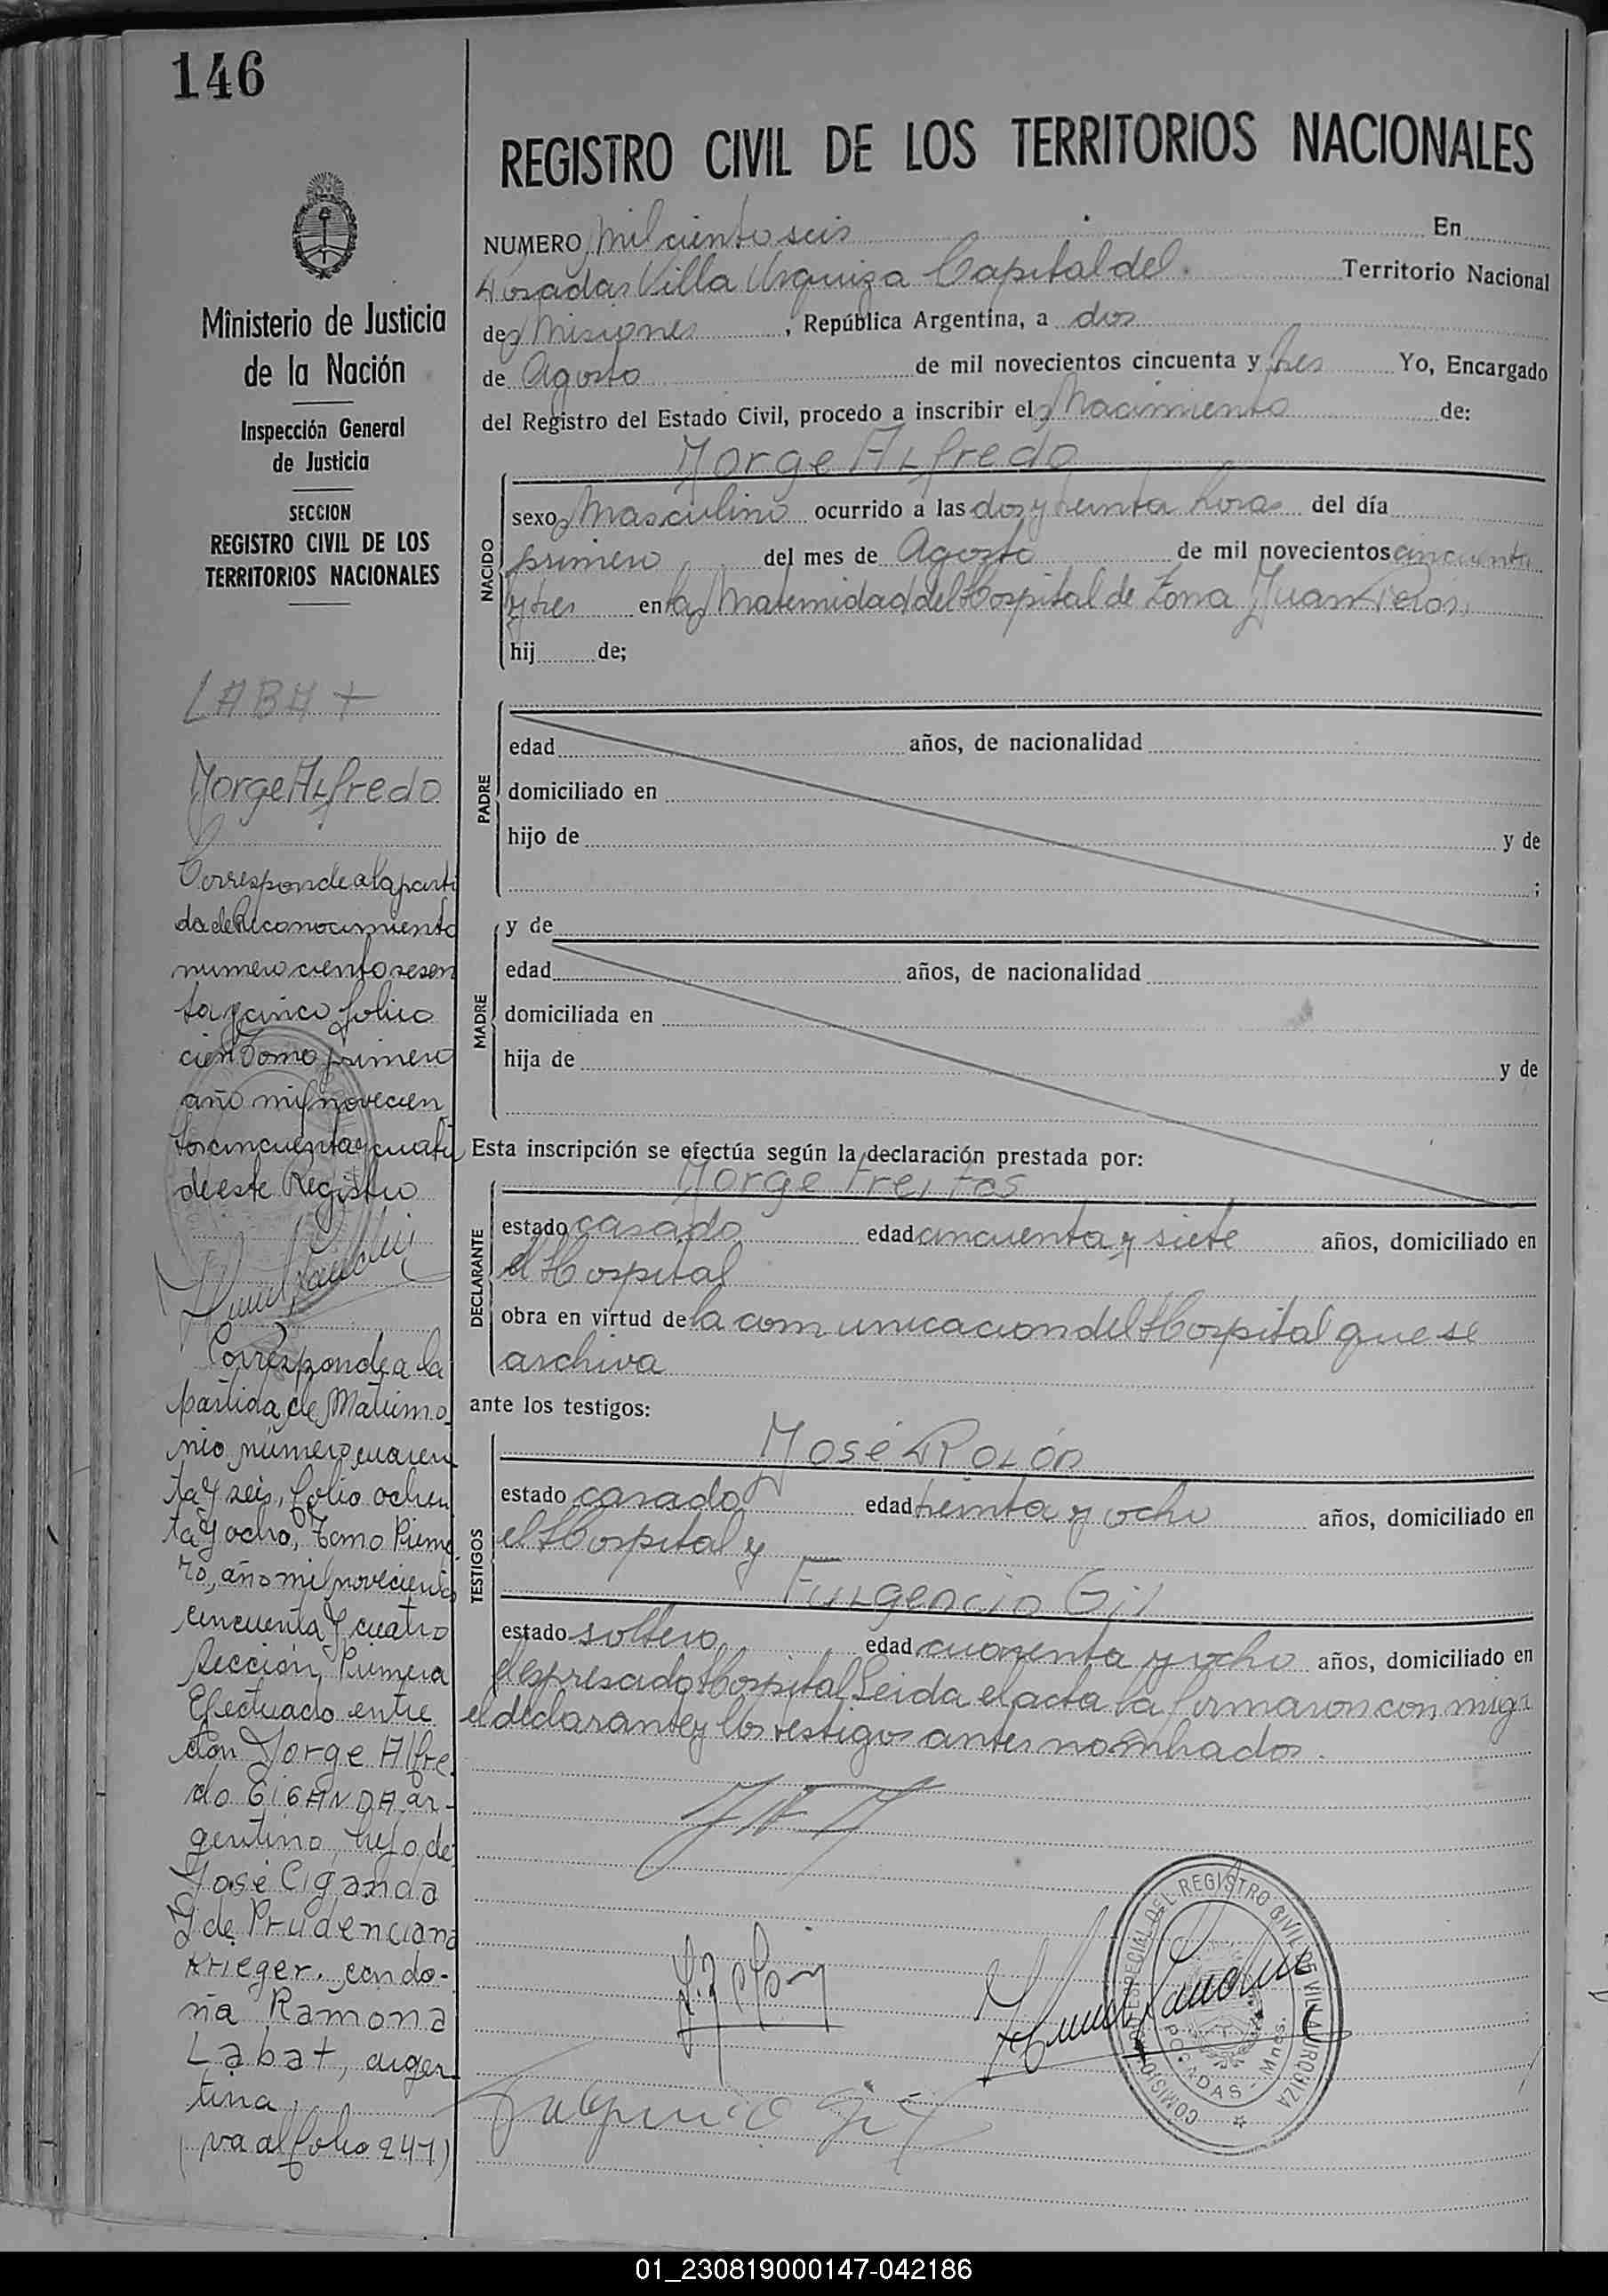 146
REGISTRO CIVIL DE LOS TERRITORIOS NACIONALES
Ministerio de Justicia
de la Nación
Inspección General
de Justicia
SECCION
REGISTRO CIVIL DE LOS
TERRITORIOS NACIONALES
LABAT
Jorge Alfredo
Corresponde a la parti
da de Reconocimiento
numero ciento sesen
ta y cinco folio
cien Tomo primero
año mil novecien
tos cincuenta y cuatro
de este Registro
Corresponde a la
partida de Matrimo
nio, número cuaren
ta y seis, folio ochen
ta y ocho, Tomo Prime
ro, año mil novecientos
cincuenta y cuatro
Sección Primera
Efectuado entre
don Jorge Alfre
do CIGANDA ar-
gentino, hijo de
José Ciganda
y de Prudenciana
Krieger. con do-
ña Ramona
Labat, argen
tina,
(va al folio 247)
NUMERO Mil ciento seis En
Posadas Villa Urquiza Capital del Territorio Nacional
de Misiones, República Argentina, a dos
de Agosto de mil novecientos cincuenta y tres Yo, Encargado
del Registro del Estado Civil, procedo a inscribir el Nacimiento de:
Jorge Alfredo
NACIDO
sexo Masculino ocurrido a las dos y treinta horas del día
primero del mes de Agosto de mil novecientos cincuenta
y tres en la Maternidad del Hospital de Zona Juan Perón
hij de;
PADRE
edad años, de nacionalidad
domiciliado en
hijo de y de
;
MADRE
y de
edad años, de nacionalidad
domiciliada en
hija de y de
Esta inscripción se efectúa según la declaración prestada por:
Jorge Freitas
DECLARANTE
estado casado edad cincuenta y siete años, domiciliado en
el Hospital
obra en virtud de la comunicacion del Hospital que se
archiva
ante los testigos:
José Rolón
TESTIGOS
estado casado edad treinta y ocho años, domiciliado en
el Hospital y
Fulgencio Gil
estado soltero edad cuarenta y ocho años, domiciliado en
el espresado Hospital Leida el acta la firmaron con migo
el declarante y los testigos antes nombrados.
Fulgencio Gil
COMISION ESPECIAL DEL REGISTRO CIVIL DE VILLA URQUIZA
POSADAS - Mnes.
01_230819000147-042186